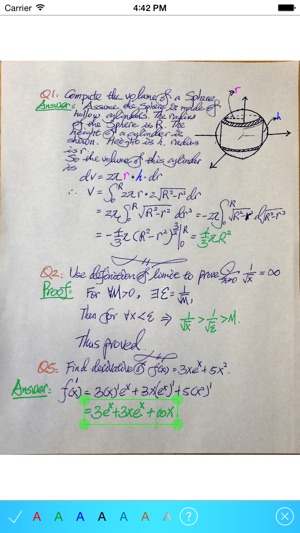 Carrier 4:42 PM
Q1: Compute the volume of a Sphere
Answer: Assume the Sphere is made of
hollow cylinders. The radius
of the Sphere is R. The
height of a cylinder is
shown. Height is h, radius
is r.
So the volume of this cylinder
is
r
h
dv = 2π r · h · dr
∴ V = ∫₀ᴿ 2πr · 2√(R²-r²) dr
= 2π∫₀ᴿ √(R²-r²) dr² = -2π∫₀ᴿ √(R²-r²) d(R²-r²)
Q2: Use definition of limits to prove lim x→0 1/√x = ∞
Proof: For ∀M>0, ∃ε = 1/M,
Then for ∀x<ε ⇒ 1/√x > 1/√ε > M.
Thus proved.
Q5: Find derivative of f(x) = 3xeˣ + 5x².
Answer: f'(x) = 3(x)'eˣ + 3x(eˣ)' + 5(x²)'
= 3eˣ + 3xeˣ + 10x
A A A A A A A ?